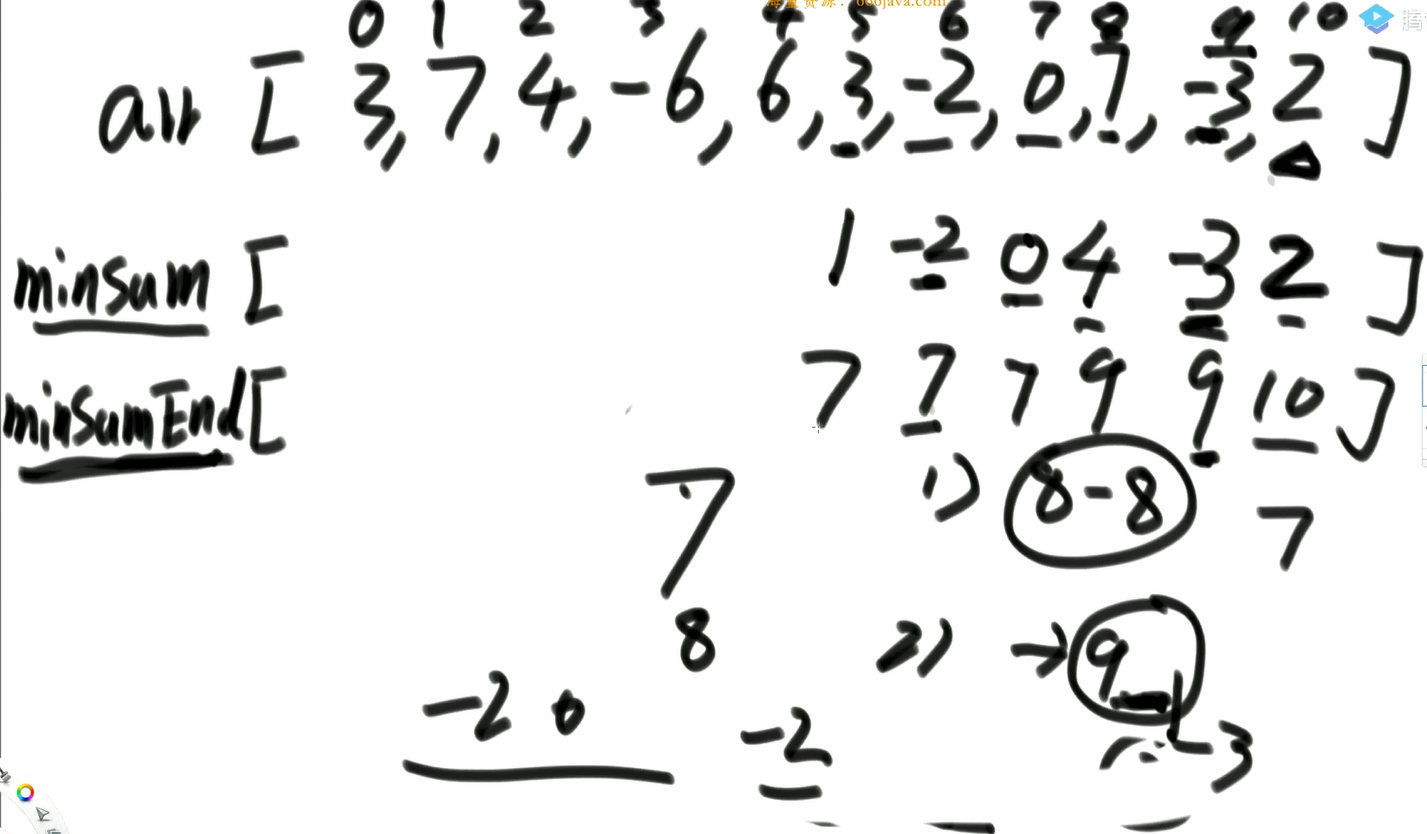 0 1 2 3 4 5 6 7 8 9 10
arr [ 3, 7, 4, -6, 6, 3, -2, 0, 7, -3, 2 ]
minSum [ 1 -2 0 4 -3 2 ]
minSumEnd [ 7 7 7 9 9 10 ]
7 1) 8-8 7
8 2) → 9
-2 0 -2 -3